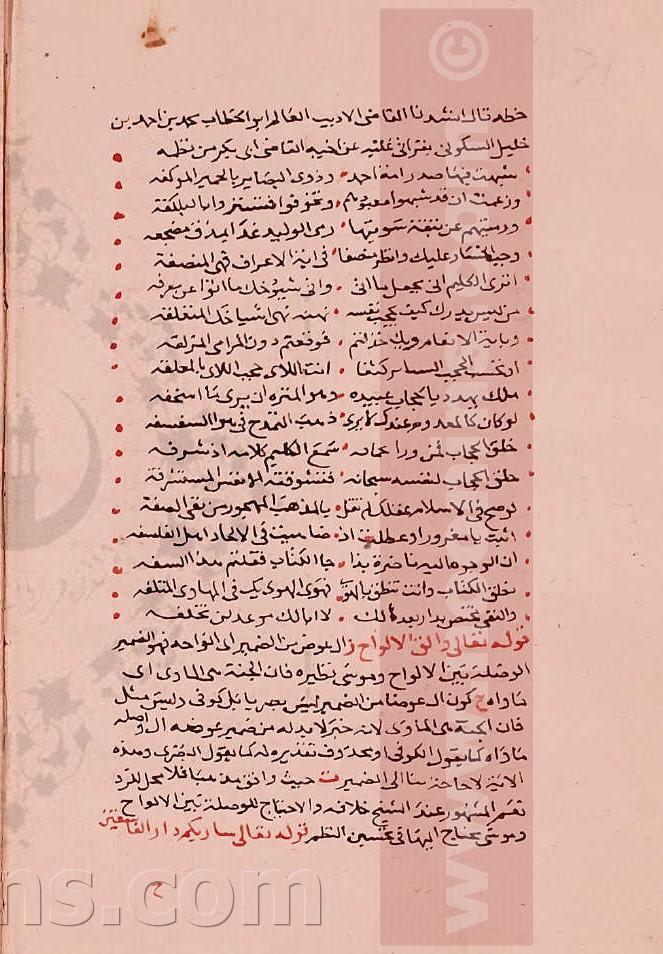 خطه قال انشدنا القاضى الاديب العالم ابو الخطاب محمد بن احمد بن
خليل السكونى بقراتى عليه عن اخيه القاضى ابى بكر من نظمه
شبهت فيها صدر امة احمد وذوى البصاير بالحمير الموكفه
وزعمت ان قد شبهوا معبودهم وتخوفوا فتستروا بالبلكفة
ورميتهم عن نبعة سويتها رمى الوليد غدا يمزق مصحفه
وجب الخسار عليك وانظر منصفا فى اية الاعراف فهى المنصفة
اترى الكليم اتى بجهل ما اتى واتى شيوخك ما اتوا عن معرفه
من ليس يدرك كيف يحجب نفسه
وباية الانعام ويك خذلتم فوقعتم دون المرامى المزلفه
ملك يهدد بالحجاب عبيده وهو المنزه ان يرى ما اسخفه
لو كان كالمعدوم عندك لا يرى ذهب التمدح فى هوا السفسفه
خلق الحجاب لمن ورا حجابه سمع الكليم كلامه اذ شرفه
خلق الحجاب لنفسه سبحانه فتشوقته الانفس المستشرفة
لو صح فى الاسلام عقلك لم تقل بالمذهب المهجور من نفى الصفة
اثبت يا مغرور او عطلت اذ ضاهيت فى الالحاد اهل الفلسفه
ان الوجوه اليه ناضرة بذا جا الكتاب فقلتم هذا السفه
نطق الكتاب وانت تنطق بالهوى فهوى الهوى بك فى المهاوى المتلفه
والنفى مختص بدار بعدها لك لا ابا لك موعد لن تخلفه
قوله تعالى والقى الالواح ز ال عوض من الضمير اى الواحه فهو الضمير
الوصلة بين الالواح وموسى نظيره فان الجنة هى الماوى اى
ماواه ح كون ال عوضا من الضمير ليس بصرىا بل كوفى وليس مثل
فان الجنة هى الماوى لانه خبر لابد له من ضمير عوضه ال واصله
ماواه كما يقول الكوفى او محذوف تقديره له كما يقول البصرى وهذه
الاية لا حاجة بنا الى الضمير ت حيث وافق مذهبا فلا محل للرد
نعم المشهور عند الشيخ خلافه والاحتياج للوصلة بين الالواح
وموسى محتاج اليها فى تحسين النظم قوله تعالى ساريكم دار الفاسقين
www.
ns.com